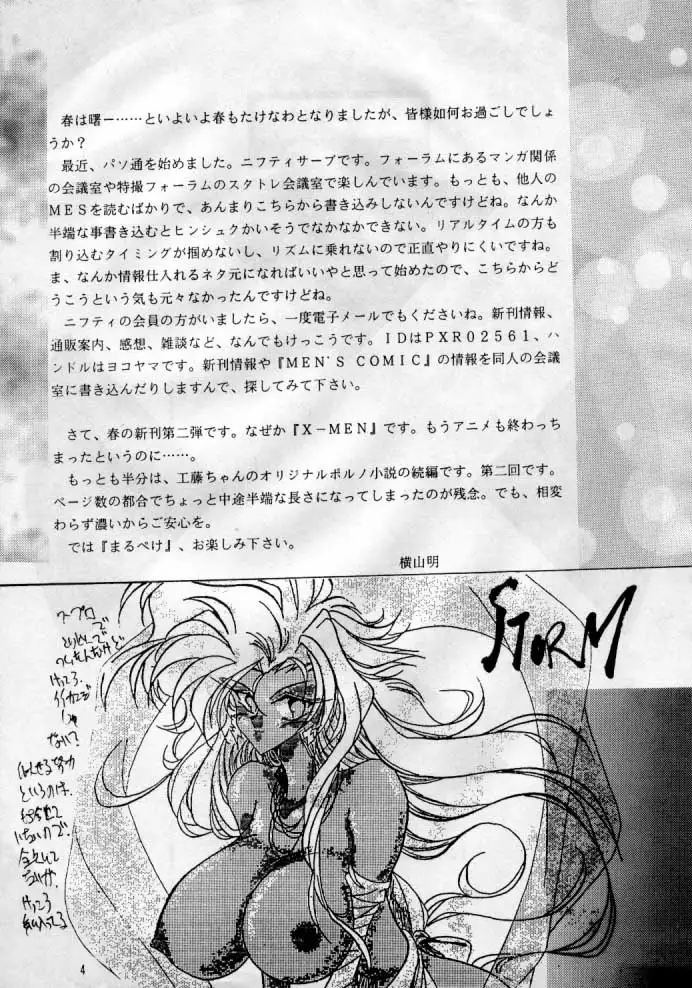 春は曙ー……といよいよ春もたけなわとなりましたが、皆様如何お過ごしでしょ
うか？
最近、パソ通を始めました。ニフティサーブです。フォーラムにあるマンガ関係
の会議室や特撮フォーラムのスタトレ会議室で楽しんでいます。もっとも、他人の
ＭＥＳを読むばかりで、あんまりこちらから書き込みしないんですけどね。なんか
半端な事書き込むとヒンシュクかいそうでなかなかできない。リアルタイムの方も
割り込むタイミングが掴めないし、リズムに乗れないので正直やりにくいですね。
ま、なんか情報仕入れるネタ元になればいいやと思って始めたので、こちらからど
うこうという気も元々なかったんですけどね。
ニフティの会員の方がいましたら、一度電子メールでもくださいね。新刊情報、
通販案内、感想、雑談など、なんでもけっこうです。ＩＤはＰＸＲ０２５６１、ハ
ンドルはヨコヤマです。新刊情報や『ＭＥＮ'Ｓ ＣＯＭＩＣ』の情報を同人の会議
室に書き込んだりしますんで、探してみて下さい。
さて、春の新刊第二弾です。なぜか『Ｘ－ＭＥＮ』です。もうアニメも終わっち
まったというのに……。
もっとも半分は、工藤ちゃんのオリジナルポルノ小説の続編です。第二回です。
ページ数の都合でちょっと中途半端な長さになってしまったのが残念。でも、相変
わらず濃いからご安心を。
では『まるぺけ』、お楽しみ下さい。
横山明
STORM
4